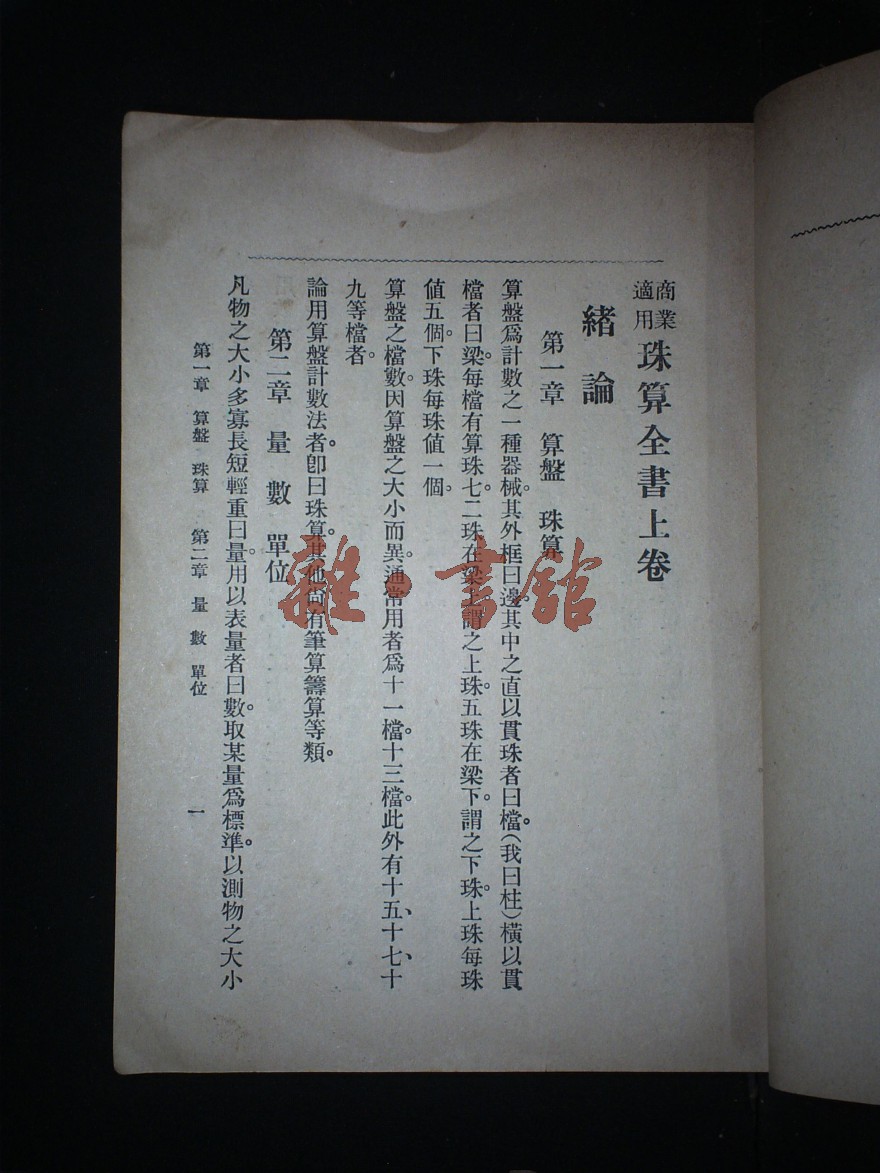 商業適用珠算全書上卷
緒論
第一章 算盤 珠算
算盤爲計數之一種器械。其外框曰邊。其中之直以貫珠者曰檔。(我曰柱)橫以貫
檔者曰梁。每檔有算珠七。二珠在梁上。謂之上珠。五珠在梁下。謂之下珠。上珠每珠
值五個。下珠每珠值一個。
算盤之檔數。因算盤之大小而異。通常用者爲十一檔。十三檔。此外有十五、十七、十
九等檔者。
論用算盤計數法者。卽曰珠算。其他尙有筆算籌算等類。
第二章 量 數 單位
凡物之大小多寡長短輕重曰量。用以表量者曰數。取某量爲標準。以測物之大小
第一章 算盤 珠算 第二章 量 數 單位
一
雜·書館